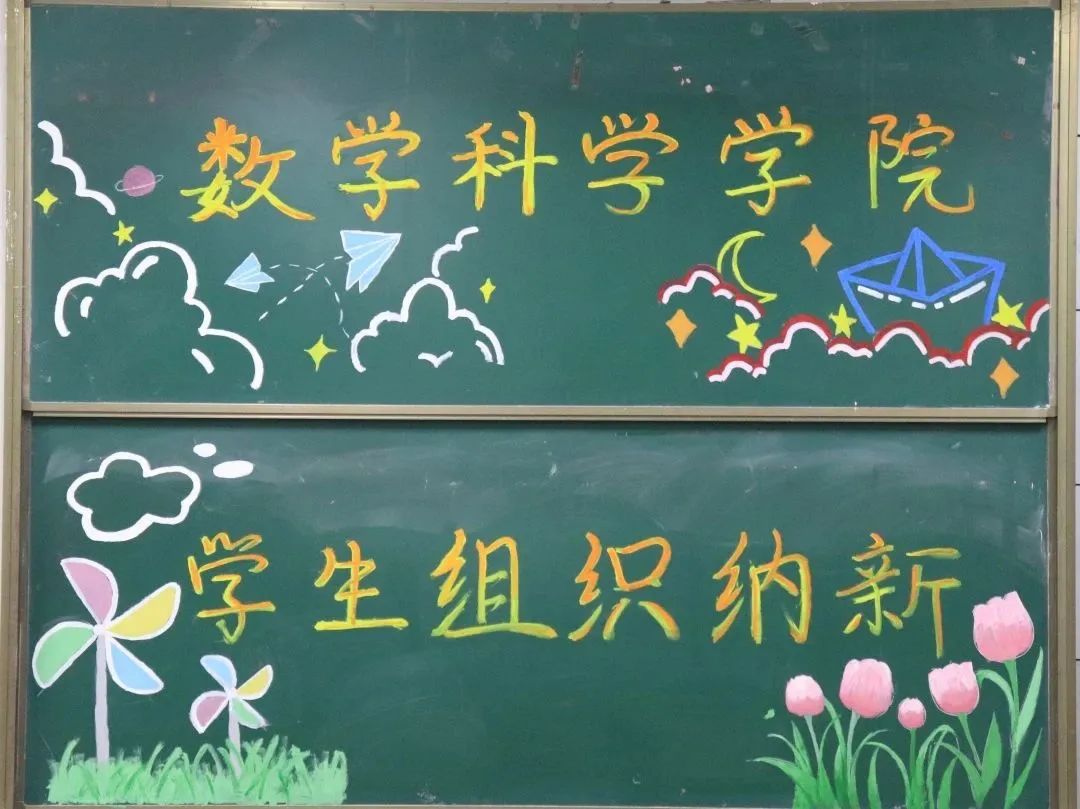 数学科学学院
学生组织纳新